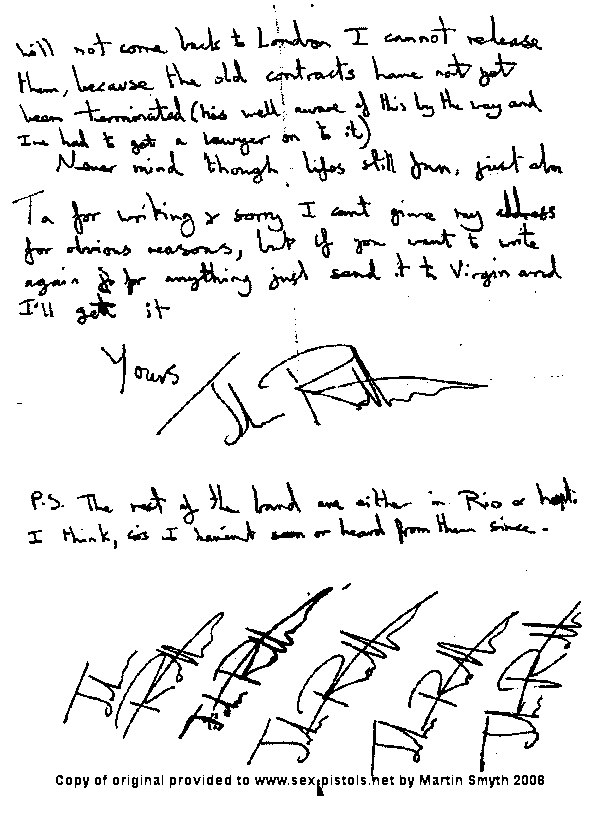 will not come back to London I cannot release
them, because the old contracts have not yet
been terminated (he's well aware of this by the way and
I've had to get a lawyer on to it)
Never mind though, lifes still fun, just abo
Ta for writing & sorry I cant give my address
for obvious reasons, but if you want to write
again for anything just send it to Virgin and
I'll get it
Yours
P.S. The rest of the band are either in Rio or
I think, cos I haven't seen or heard from them since.
Copy of original provided to www.sex-pistols.net by Martin Smyth 2008